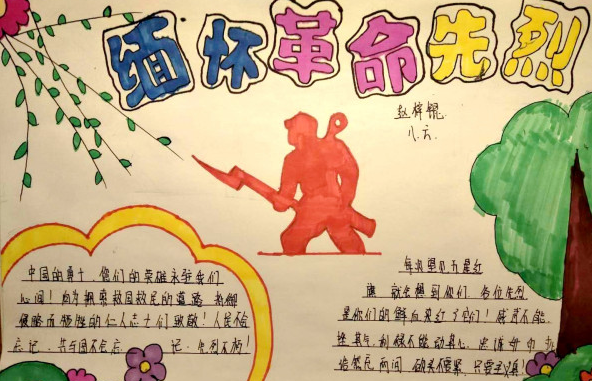 缅怀革命先烈
赵梓锟
八、六
中国的勇士,您们的英雄永驻我们
心间!向为探索救国救民的道路 抵御
侵略而牺牲的仁人志士们致敬!人民不会
忘记,共与国不会忘 记,先烈不朽!
每次望见五星红
旗 就会想到你们,各位先烈
是你们的鲜血染红了它们!威武不能
砍头不要紧,只要主义真!